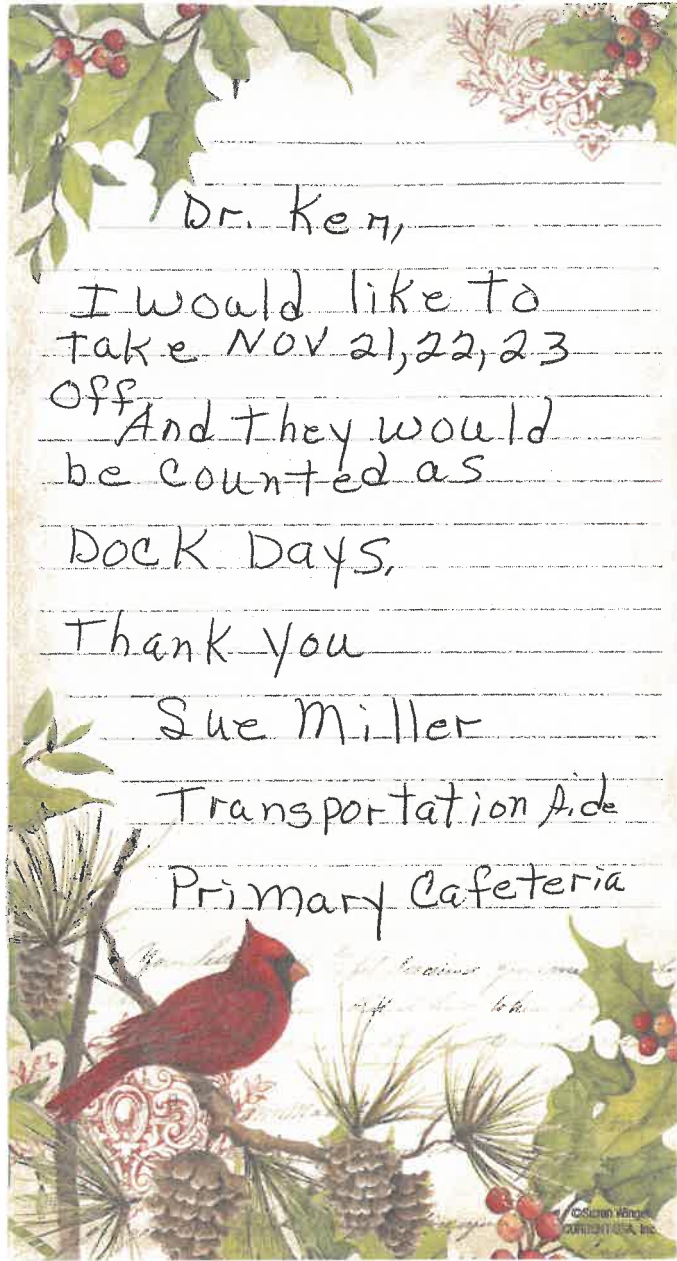 Dr. Ken,
I would like to
take Nov 21,22,23
off.
And they would
be counted as
Dock Days.
Thank you
Sue Miller
Transportation Aide
Primary Cafeteria
©Susan Winget
CURRENT USA, Inc.